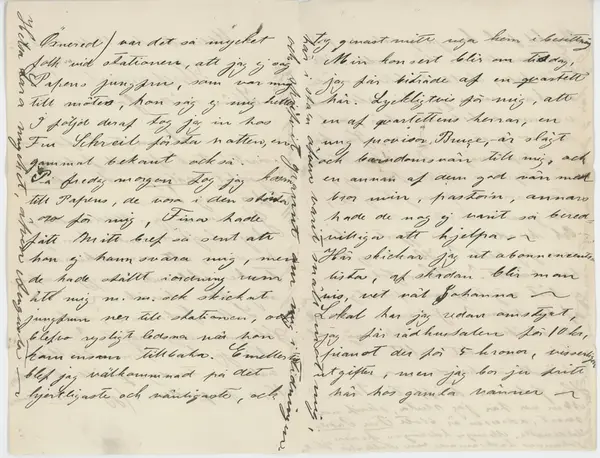 Östnered) var det så mycket
folk vid stationen, att jag ej såg
Papens jungfru, som var mig
till mötes, hon såg ej mig heller.
I följd deraf tog jag in hos
Fru Schreil första natten, en
gammal bekant också.
På fredag morgon tog jag
till Papens, de voro i den största
oro för mig, Fina hade
fått mitt bref så sent att
hon ej hann svara mig, men
de hade ställt i ordning rum
till mig m. m. och skickat
jungfrun ner till stationen, och
blefvo rysligt ledsna när hon
kom ensam tillbaka. Emellertid
blef jag välkommnad på det
hjertligaste och vänligaste, och
tog genast mitt nya hem i besittning
Min konsert blir om tisdag,
jag får biträde af en quartett
här. Lyckligtvis för mig, att
en af quartettens herrar, en
ung provisor Bruze, är slägt
och barndomsvän till mig, och
en annan af dem god vän med
bror min, pastorn, annars
hade de nog ej varit så bered-
villiga att hjelpa
Här skickar jag ut abonnements
lista, af skadan blir man
vis, vet väl Johanna
Lokal har jag redan anskaffat,
jag får rådhussalen för 10 kr,
pianot der för 5 kronor,
utgifter, men jag bor ju fritt
här hos gamla vänner